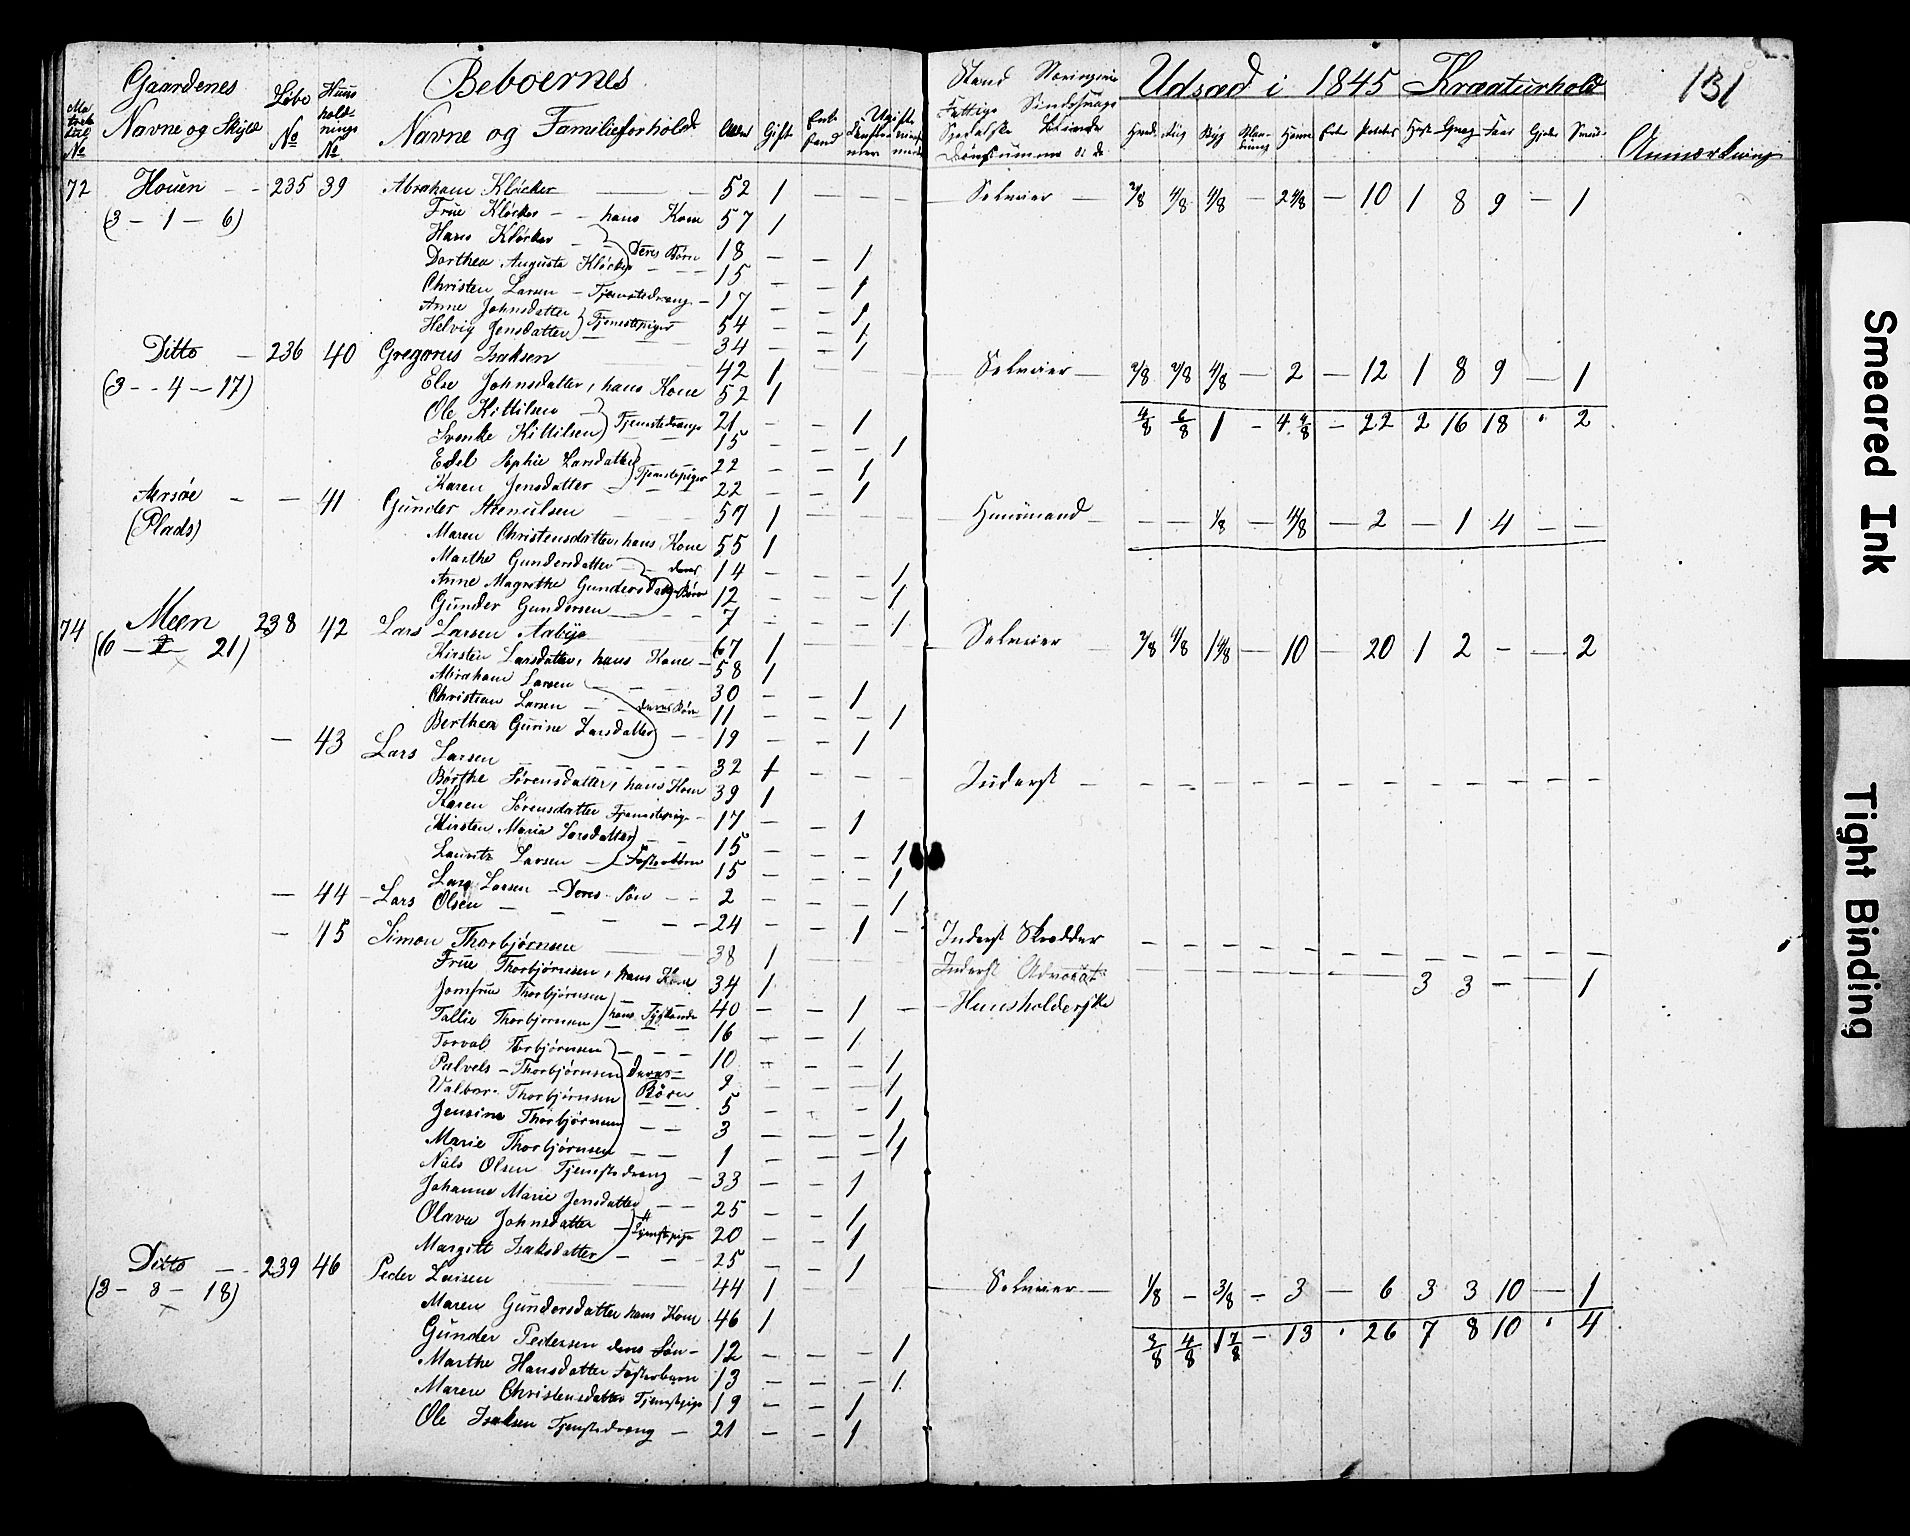 Gaardenes Beboernes Stand Næringsvei Udsæd i 1845 Kreaturhold 131
Matrikul No Navne og Skyld Løbe No Huusholdnings No Navne og Familieforhold Alder Gift Ugifte Hvede Rug Byg Havre Erter Poteter Heste Qvæg Faar Gjeder Sviin Anmærkning
72 Houen - - 235 39 Abraham Kløcker - - 52 1 - - - - Selveier - 2/8 4/8 4/8 - 2 4/8 - 10 1 8 9 - 1
(3 - 1 - 6) Frue Kløcker - - hans Kone 57 1
Hans Kløcker - - } Deres Børn 18 - - 1
Dorthea Augusta Kløcker - - - 15 - - 1
Christen Larsen - Tjenstedreng - 17 - - 1
Anne Johnsdatter } Tjenstepiger 54 - - 1
Helvig Jensdatter 34 - - 1
Ditto - 236 40 Gregorius Isaksen 42 1 - Selveier - 2/8 2/8 4/8 - 2 - 12 1 8 9 - 1
(3 - - 4 - 17) Else Johnsdatter, hans Kone 52 1
Ole Kittilsen - } Tjenstedrenge 21 - - 1 4/8 6/8 1 - 4 4/8 - 22 2 16 18 " 2
Svenke Kittilsen 15 - - - 1
Edel Sophie Larsdatter } Tjenstepiger 22 - - 1
Karen Jensdatter - - - 22 - - 1
- - 41 Gunder Stenulsen 57 1 - Huusmand - - - 1/8 - 4/8 - 2 - 1 4 - -
(Plads) Maren Christensdatter, hans Kone 55 1
Marthe Gundersdatter - - deres 14 - - - 1
Anne Magrethe Gundersdatter Børn 12 - - - 1
Gunder Gundersen - - - 7 - - - 1
74 Meen 238 42 Lars Larsen Aabye 67 1 - Selveier 2/8 4/8 1 4/8 - 10 - 20 1 2 - - 2
(6 - 2 - 21) Kirsten Larsdatter, hans Kone - 58 1
Abraham Larsen 30 - - 1
Christian Larsen - - deres Børn 11 - - - 1
Berthea Gurine Larsdatter - - 19 - - 1
- 43 Lars Larsen - - - - - 32 1 - - - Inderst - - - - - - - - - - - - -
Børthe Sørensdatter, hans Kone 39 1
Karen Sørensdatter Tjenstepige - 17 - - 1
Kirsten Maria Larsdatter } - - 15 - - - 1
Lauritz Larsen - } Fosterbørn 15 - - - 1
Lars Larsen - Deres Søn - - 2 - - - 1
- 44 - Lars Olsen - - - - - 24 - - 1 - Inderst Skrædder - - - - - - - - - - - -
- 45 Simon Thorbjørnsen 38 1 Inderst Advocat - - - - - - - 3 3 - - 1
Frue Thorbjørnsen, hans Kone 34 1
Jomfrue Thorbjørnsen } - - 40 - - 1 - Huusholderske
Tallie Thorbjørnsen } hans Søskende 16 - - 1
Torval Thorbjørnsen } - - - 10 - - - 1
Thorbjørnsen Deres - 9 - - - 1
Thorbjørnsen Børn 5 - - - 1
Jensine Thorbjørnsen - - 3 - - - 1
Marie Thorbjørnsen - - 1 - - - 1
Niels Olsen Tjenstedreng - 33 - - 1
Johanne Marie Jensdatter - - 25 - - 1
Olava Johnsdatter - } Tjenstepige 20 - - 1
Margitt Isaksdatter - - - 25 - - 1
Ditto - - 239 46 Peder Larsen 44 1 - Selveier - 1/8 - 3/8 - 3 - 6 3 3 10 - 1
(3 - 3 - 18) Maren Gundersdatter hans Kone 46 1
Gunder Pedersen deres Søn - 12 - - - 1 3/8 4/8 1 7/8 - 13 " 26 7 8 10 " 4
Marthe Hansdatter Fosterbarn 13 - - - 1
Maren Christensdatter Tjenstepige 19 - - 1
Ole Isaksen Tjenstedreng - 21 - - 1
Smeared Ink
Tight Binding